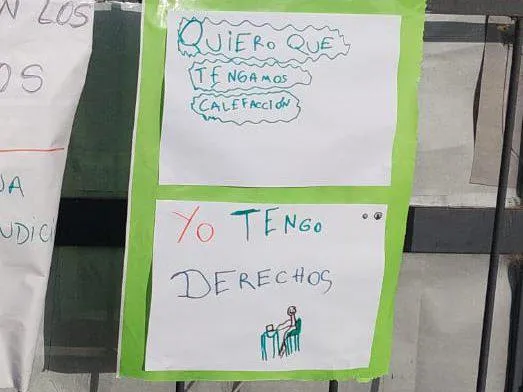 N LOS
OS
QUIERO QUE
TENGAMOS
CALEFACCIÓN
YO TENGO
DERECHOS